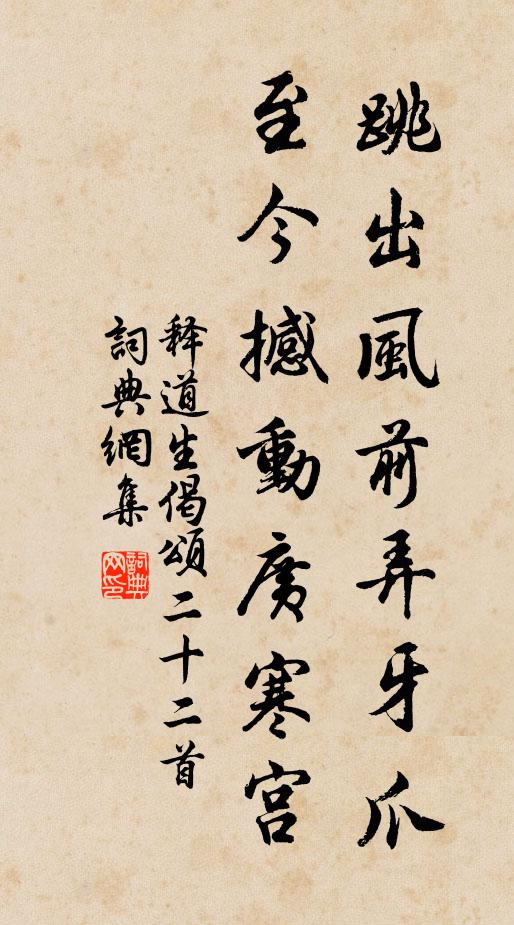 跳出風前弄牙爪
至今撼動廣寒宮
释道生偈頌二十二首
詞典網集
詞典网印